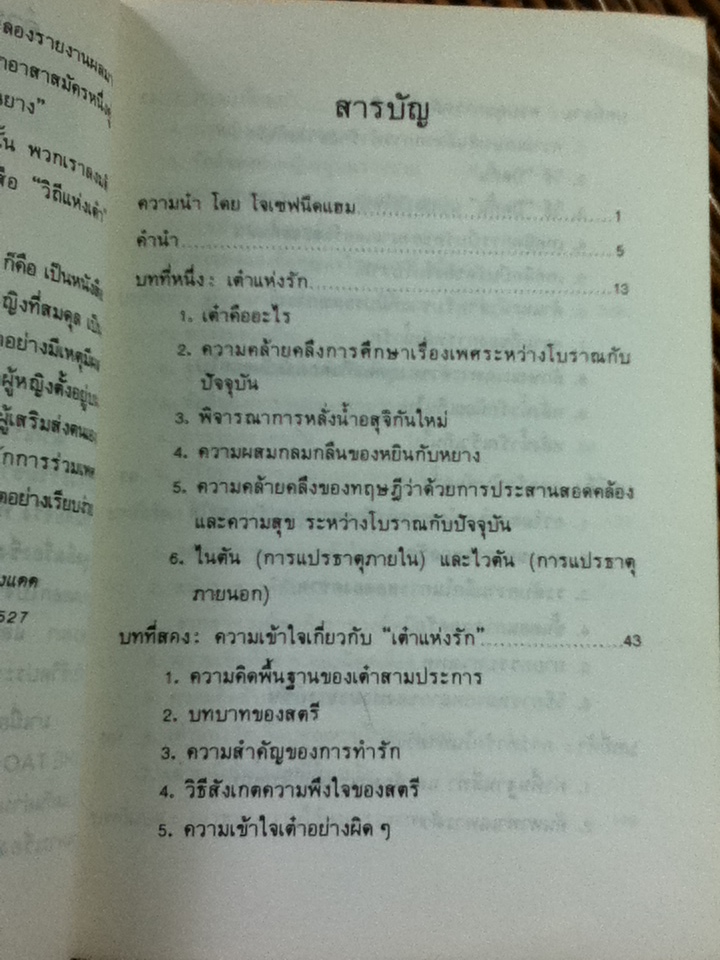 ลองรายงานผลมา
าอาสาสมัครหนึ่งคู่
นยาง”
ั้น พวกเราตงนล้
สือ “วิถีแห่งเต๋า”
ก็คือ เป็นหนังสือ
ญิงที่สมดุล เป็น
าอย่างมีเหตุมีผล
ผู้หญิงตั้งอยู่บน
ผู้เสริมส่งตนเอง
ักการร่วมเพศ
ตอย่างเรียบง่าย
งแดด
527
สารบัญ
ความนำ โดย โจเซฟนีดแฮม 1
คำนำ 5
บทที่หนึ่ง: เต๋าแห่งรัก 13
1. เต๋าคืออะไร
2. ความคล้ายคลึงการศึกษาเรื่องเพศระหว่างโบราณกับ
ปัจจุบัน
3. พิจารณาการหลั่งน้ำอสุจิกันใหม่
4. ความผสมกลมกลืนของหยินกับหยาง
5. ความคล้ายคลึงของทฤษฎีว่าด้วยการประสานสอดคล้อง
และความสุข ระหว่างโบราณกับปัจจุบัน
6. ไนตัน (การแปรธาตุภายใน) และไวตัน (การแปรธาตุ
ภายนอก)
บทที่สอง: ความเข้าใจเกี่ยวกับ “เต๋าแห่งรัก” 43
1. ความคิดพื้นฐานของเต๋าสามประการ
2. บทบาทของสตรี
3. ความสำคัญของการทำรัก
4. วิธีสังเกตความพึงใจของสตรี
5. ความเข้าใจเต๋าอย่างผิด ๆ